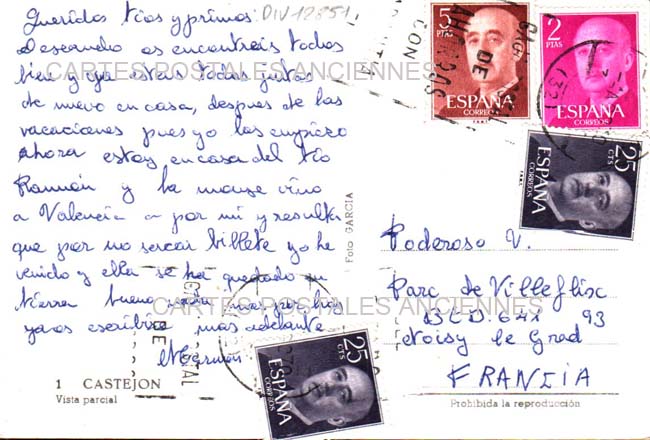 Queridos tios y primos DIV12851
Deseando os encontreis todos
bien y que esteis todos juntos
CARTES POSTALES ANCIENNES
de nuevo en casa, despues de las
vacaciones pues yo las empiezo
Ahora estoy en casa del tio
Rammón y la vino
a Valencia a por mi y resulta
que por no sacar billete yo he
venido y ella se ha quedado en
tierra bueno
CARTES POSTALES ANCIENNES
ya os escribire mas adelante
1 CASTEJON
Vista parcial
Foto GARCIA
5
PTAS
ESPAÑA
CORREOS
2
PTAS
ESPAÑA
CORREOS
25
CTS
ESPAÑA
CORREOS
Poderoso V.
Parc de Villeflix
93
Noisy le Grad
FRANCIA
25
CTS
ESPAÑA
CORREOS
Prohibida la reproducción